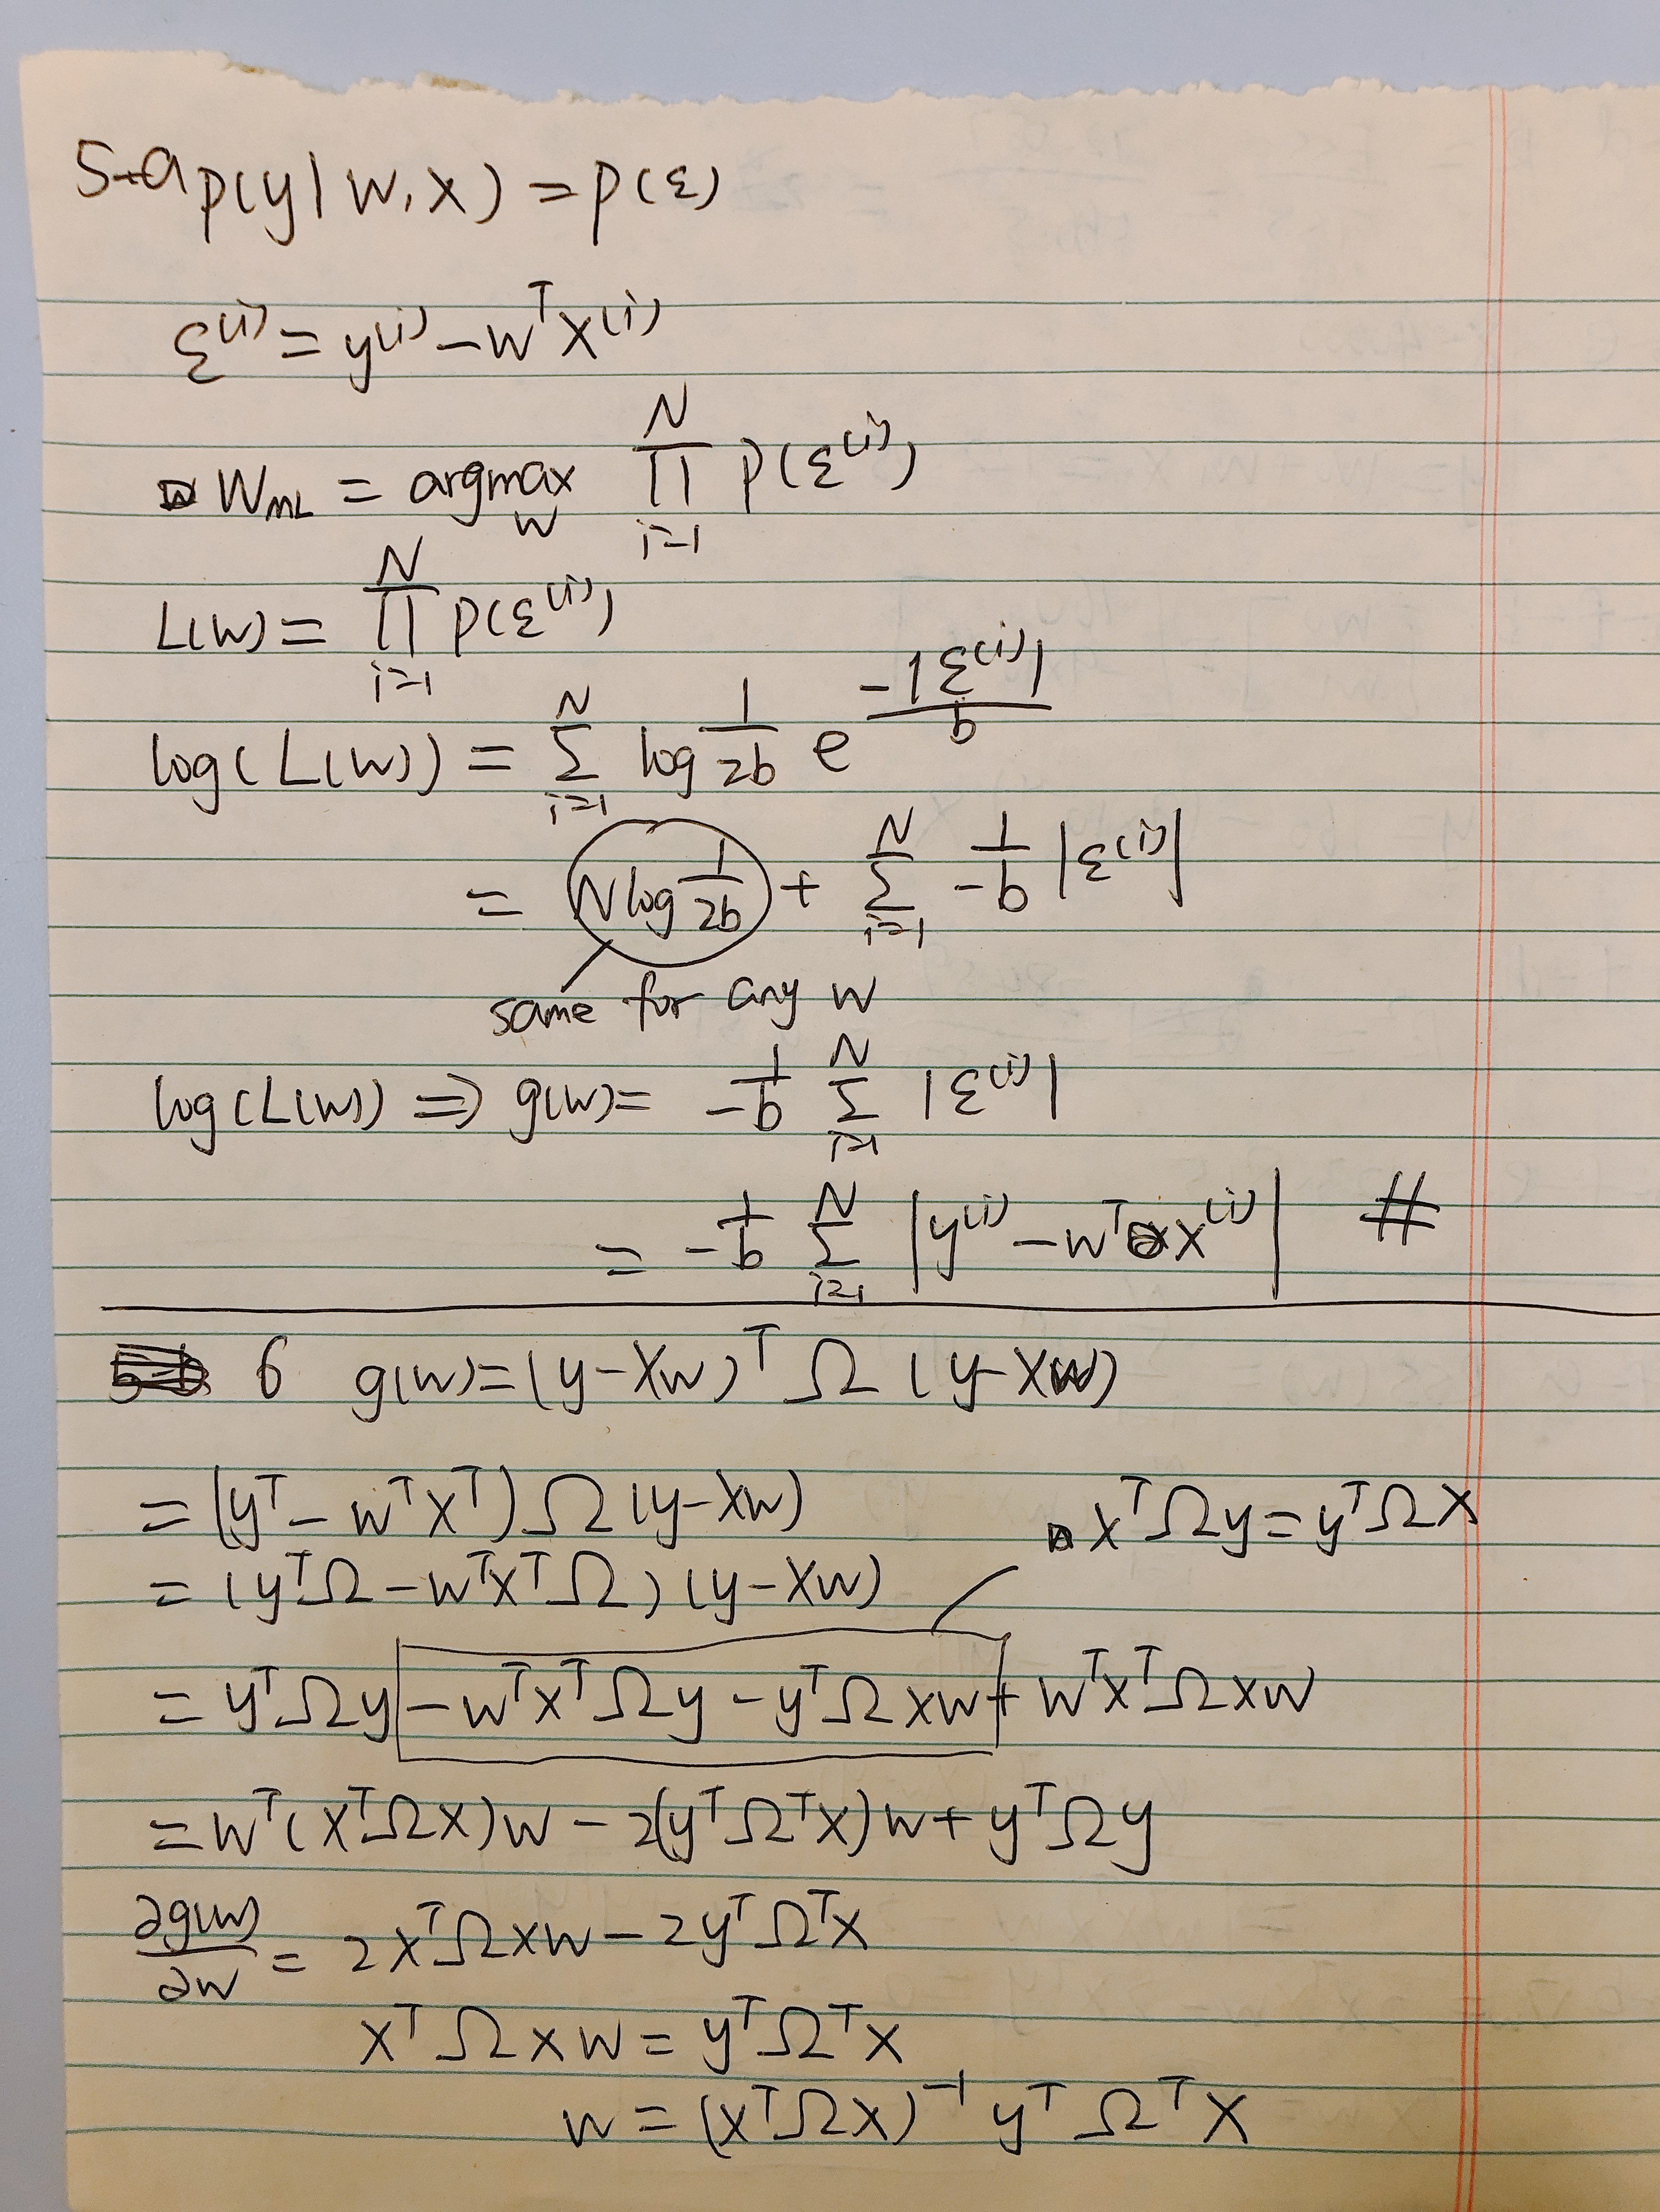 5-a p(y|w,x) = p(ε)
ε⁽ⁱ⁾ = y⁽ⁱ⁾ - wᵀx⁽ⁱ⁾
w_ML = argmax_w ∏_{i=1}^{N} p(ε⁽ⁱ⁾)
L(w) = ∏_{i=1}^{N} p(ε⁽ⁱ⁾)
log(L(w)) = Σ_{i=1}^{N} log 1/2b e^{-|ε⁽ⁱ⁾|/b}
= N log 1/2b + Σ_{i=1}^{N} -1/b |ε⁽ⁱ⁾|
same for any w
log(L(w)) ⇒ g(w) = -1/b Σ_{i=1}^{N} |ε⁽ⁱ⁾|
= -1/b Σ_{i=1}^{N} |y⁽ⁱ⁾ - wᵀx⁽ⁱ⁾| #
6 g(w) = (y-Xw)ᵀ Ω (y-Xw)
= (yᵀ - wᵀXᵀ) Ω (y-Xw)
xᵀΩy = yᵀΩx
= (yᵀΩ - wᵀXᵀΩ) (y-Xw)
= yᵀΩy - wᵀXᵀΩy - yᵀΩXw + wᵀXᵀΩXw
= wᵀ(XᵀΩX)w - 2(yᵀΩᵀX)w + yᵀΩy
∂g(w)/∂w = 2XᵀΩXw - 2yᵀΩᵀX
XᵀΩXw = yᵀΩᵀX
w = (XᵀΩX)⁻¹ yᵀΩᵀX